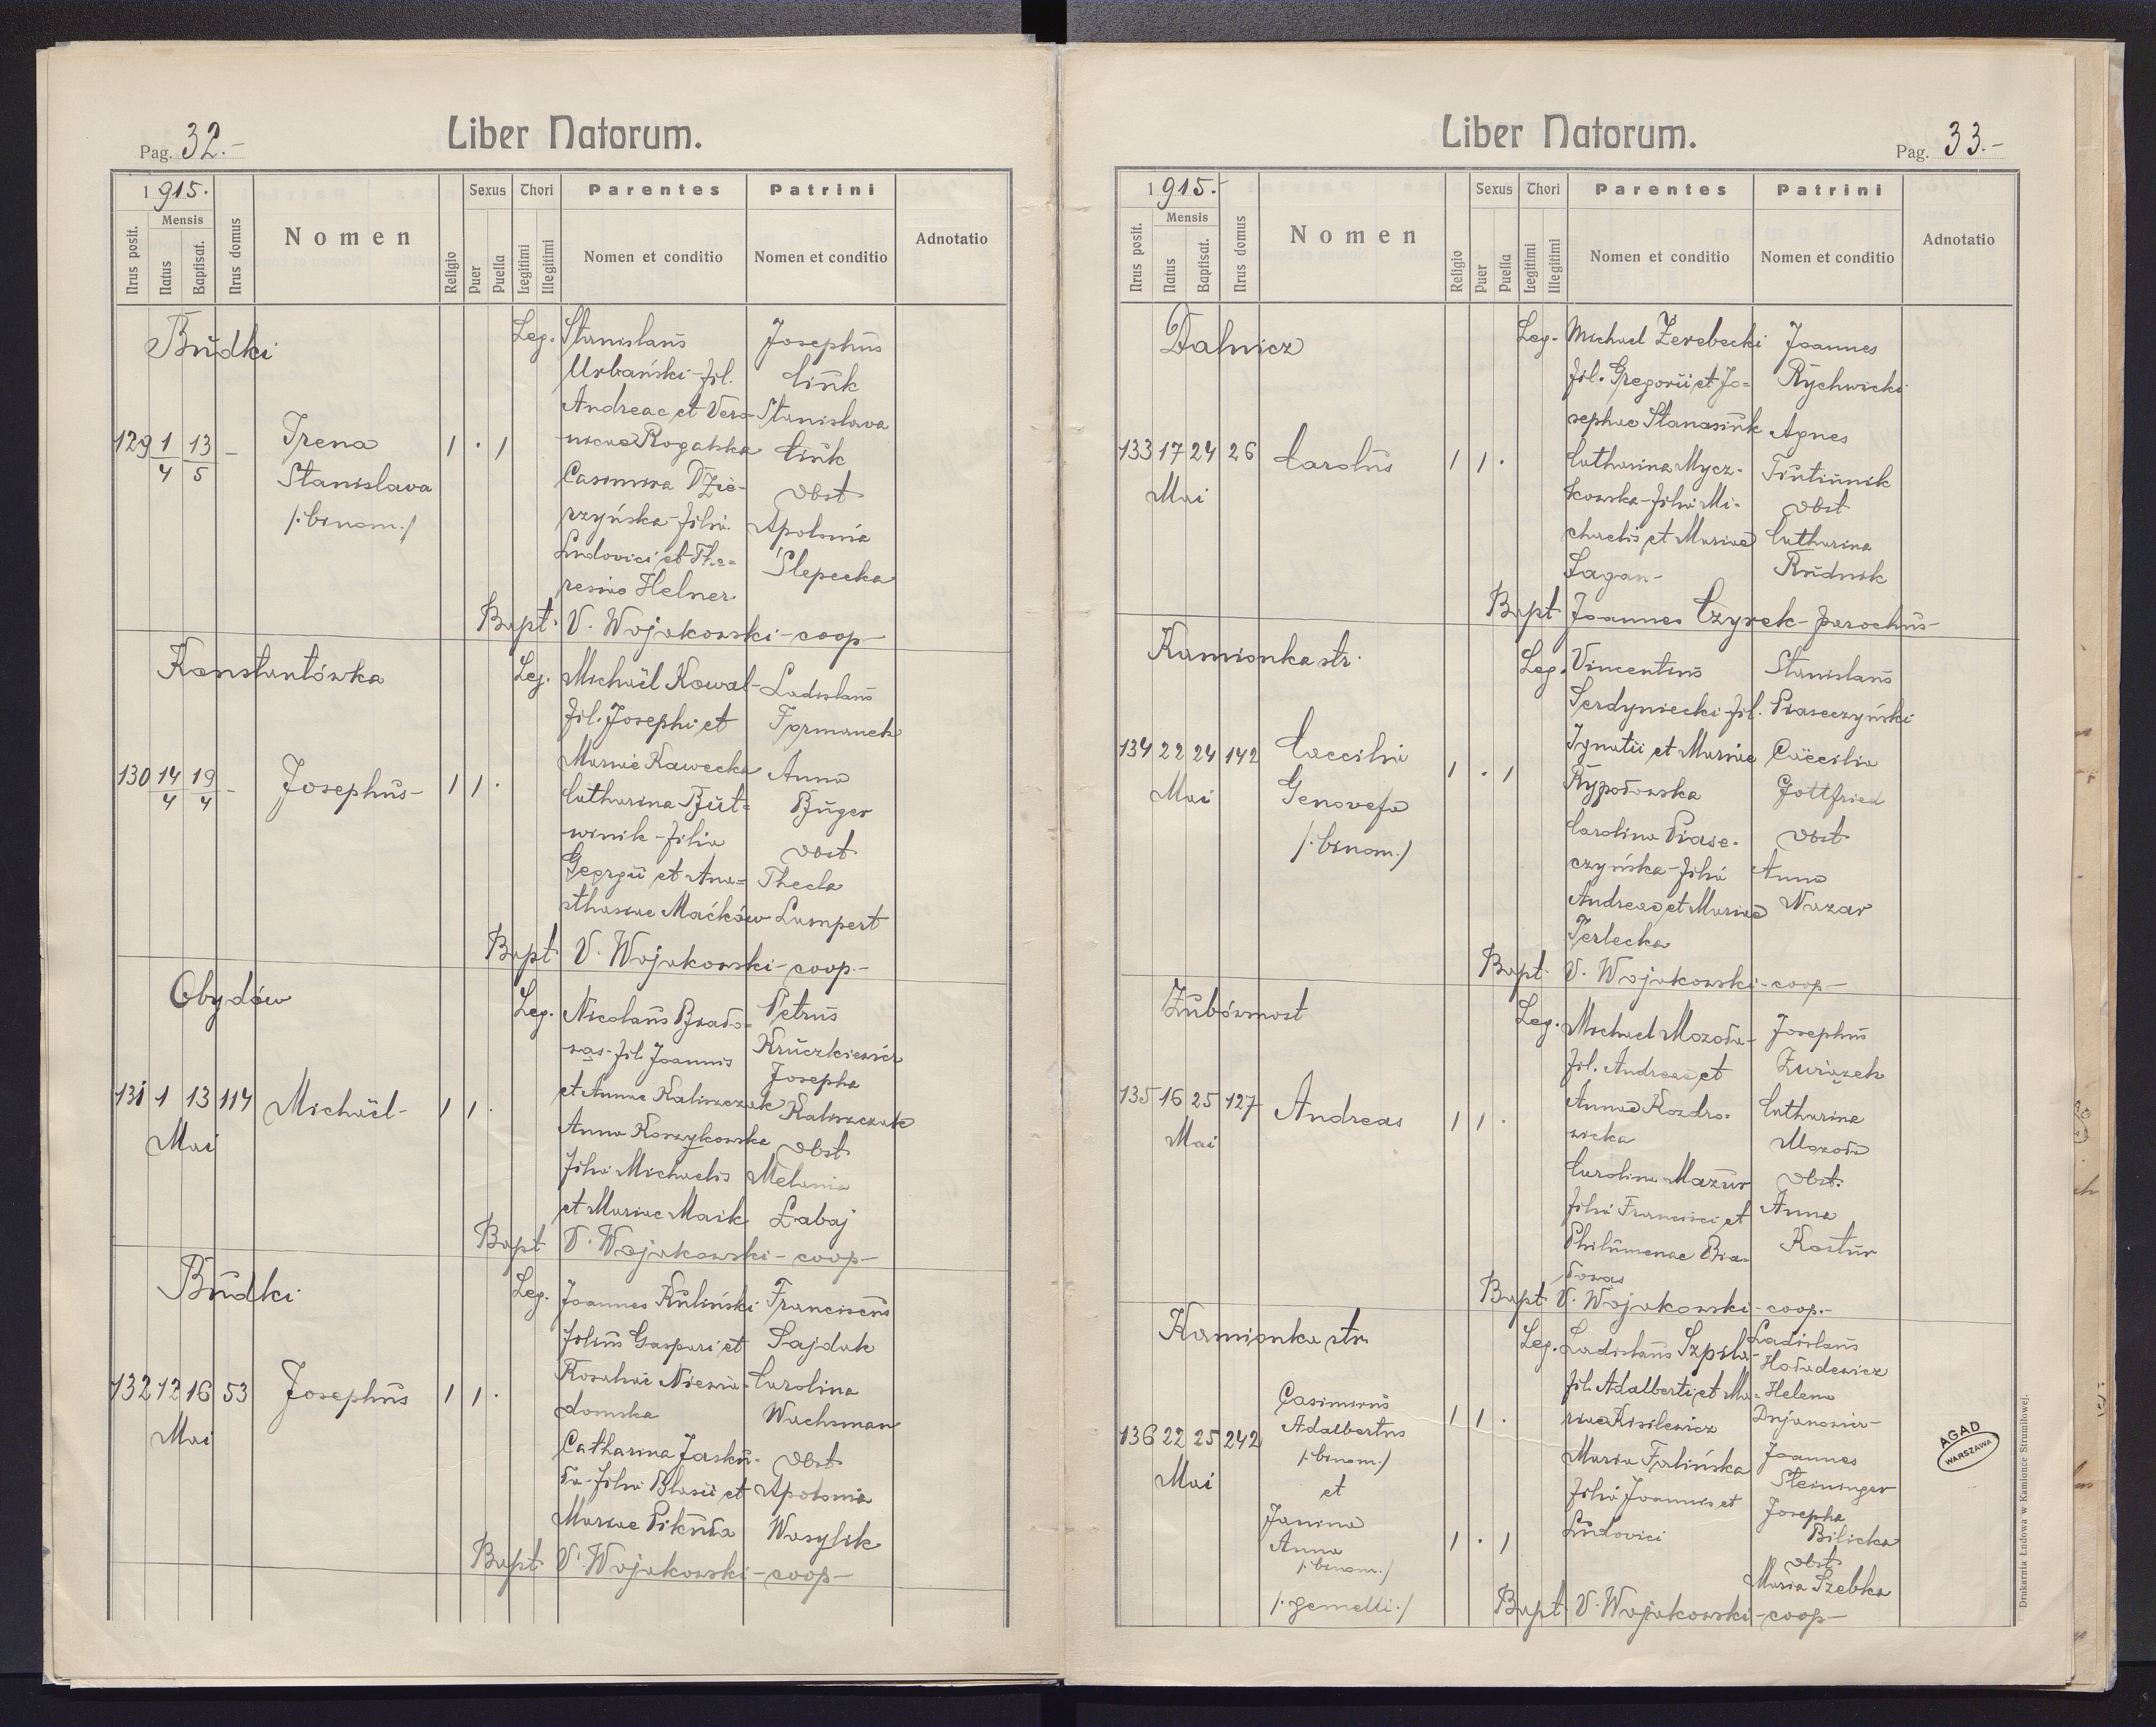 Pag. 32.-
Liber Natorum.
1915.
Nrus posit.
Mensis
Natus
Baptisat.
Nrus domus
Nomen
Religio
Sexus
Puer
Puella
Thori
Legitimi
Illegitimi
Parentes
Nomen et conditio
Patrini
Nomen et conditio
Adnotatio
Budki
129 1/4 13/5 -
Irena
Stanislava
/:binom:/
1 . 1
Leg.
Stanislaus
Urbański-fil.
Andreae et Vero-
nicae Rogalska
Casimira Dzie-
rzyńska-filia
Ludovici et The-
resiae Helner
Josephus
Link
Stanislava
Link
Obst
Apolonia
Ślepecka
Bapt. V. Wojakowski-coop-
Konstantówka
130 14/4 19/4 -
Josephus-
1 1 .
Leg.
Michaël Kowal-
fil. Josephi et
Mariae Kawecka
Catharina But-
winik-filia
Georgii et Ana-
sthasiae Maćków
Ladislaus
Formanek
Anna
Buger
Obst
Thecla
Lampert
Bapt V. Wojakowski-coop.-
Obydów
131 1 13 114
Mai
Michaël-
1 1 .
Leg.
Nicolaus Biało-
wąs-fil. Joannis
et Annae Kaliszczak
Anna Koszykowska
filia Michaelis
et Mariae Maik
Petrus
Kruczkiewicz
Josepha
Kaliszczak
Obst
Melania
Łabaj
Bapt V. Wojakowski-coop-
Budki
132 12 16 53
Mai
Josephus
1 1 .
Leg.
Joannes Kuliński
filius Gaspari et
Rosaliae Niewia-
domska
Catharina Jasku-
ła-filia Blasii et
Mariae Pikuła
Franciscus
Sajdak
Carolina
Wachsman
Obst
Apolonia
Wasylik
Bapt V. Wojakowski-coop-
Liber Natorum.
Pag. 33.-
1915.-
Nrus posit.
Mensis
Natus
Baptisat.
Nrus domus
Nomen
Religio
Sexus
Puer
Puella
Thori
Legitimi
Illegitimi
Parentes
Nomen et conditio
Patrini
Nomen et conditio
Adnotatio
Dalnicz
133 17 24 26
Mai
Carolus
1 1 .
Leg.
Michael Żerebecki
fil. Gregorii et Jo-
sephae Stanasiuk
Catharina Mycz-
kowska-filia Mi-
chaelis et Mariae
Łagan-
Joannes
Rychwicki
Agnes
Tiutiunnik
Obst
Catharina
Rudnik
Bapt Joannes Czyrek-parochus-
Kamionka str.
134 22 24 142
Mai
Caecilia
Genovefa
/:binom:/
1 . 1
Leg.
Vincentius
Serdyniecki-fil.
Ignatii et Mariae
Rypołowska
Carolina Piase-
czyńska-filia
Andreae et Mariae
Terlecka
Stanislaus
Piaseczyński
Caëcilia
Gottfried
Obst
Anna
Nazar
Bapt V. Wojakowski-coop-
Żubówmost
135 16 25 127
Mai
Andreas
1 1 .
Leg.
Michael Mozoła-
fil. Andreae et
Annae Kozdro-
wicka
Carolina Mazur
filia Francisci et
Philumenae Bia-
łowąs
Josephus
Związek
Catharina
Mozoła
Obst.
Anna
Kostur
Bapt V. Wojakowski-coop.-
Kamionka str.
136 22 25 242
Mai
Casimirus
Adalbertus
/:binom:/
et
Janina
Anna
/:binom:/
/:gemelli:/
1 1 .
1 . 1
Leg.
Ladislaus Szpila-
fil. Adalberti et Ma-
riae Kisilewicz
Maria Falińska
filia Joannis et
Ludovici
Ladislaus
Hoładewicz
Helena
Joannes
Steininger
Josepha
Bilicka
Obst
Maria Szebka
Bapt V. Wojakowski-coop-
AGAD
WARSZAWA
Drukarnia Ludowa w Kamionce Strumiłowej.